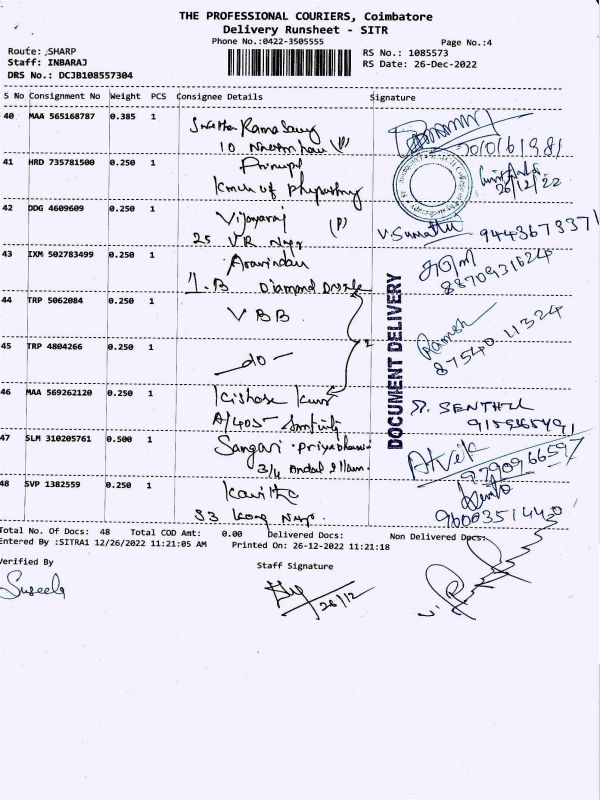 THE PROFESSIONAL COURIERS, Coimbatore
Delivery Runsheet - SITR
Phone No.:0422-3505555
Page No.:4
Route: ,SHARP
Staff: INBARAJ
DRS No.: DCJB108557304
RS No.: 1085573
RS Date: 26-Dec-2022
S No Consignment No Weight PCS Consignee Details Signature
40 MAA 565168787 0.385 1
20/01/61981
41 HRD 735781500 0.250 1 Principal
26/12/22
42 DDG 4609609 0.250 1 Vijayaraj (P)
25 VR Nagr
V. Sumathi 9443673371
43 IXM 502783499 0.250 1 Aravindan
1-B Diamond
8870931624
44 TRP 5062084 0.250 1 VBB
Ramesh
87540 11324
45 TRP 4804266 0.250 1 - do -
46 MAA 569262120 0.250 1 Kishore
A/405
SENTHIL
47 SLM 310205761 0.500 1 Sangari Priya
3/4 Andal Illam
Atvik
9790966597
48 SVP 1382559 0.250 1 Kavitha
83 Kong Nagr
9600351440
DOCUMENT DELIVERY
Total No. Of Docs: 48 Total COD Amt: 0.00 Delivered Docs: Non Delivered Docs:
Entered By :SITRA1 12/26/2022 11:21:05 AM Printed On: 26-12-2022 11:21:18
Verified By
Staff Signature
Suseela
26/12